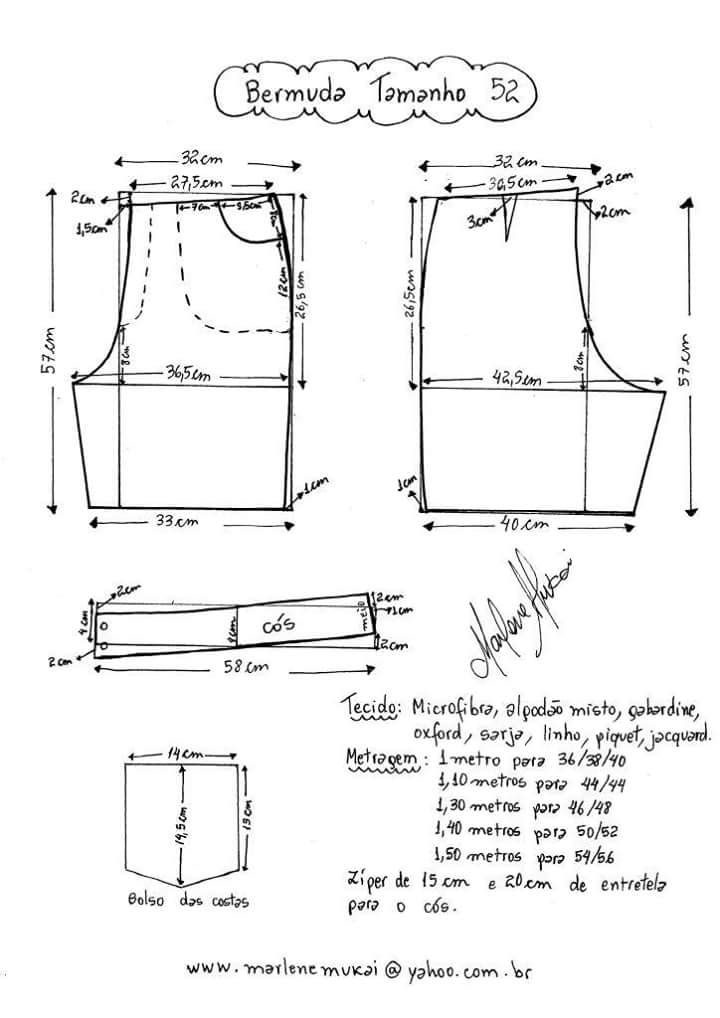 Bermuda Tamanho 52
32cm
27,5cm
2cm
1,5cm
7cm
12cm
26,5cm
57cm
8cm
36,5cm
1cm
33cm
32cm
30,5cm
2cm
2cm
3cm
26,5cm
57cm
8cm
42,5cm
1cm
40cm
2cm
4cm
2cm
cós
meio
2cm
1cm
2cm
58cm
Marlene Mukai
Tecido: Microfibra, algodão misto, gabardine,
oxford, sarja, linho, piquet, jacquard.
Metragem: 1 metro para 36/38/40
1,10 metros para 44/44
1,30 metros para 46/48
1,40 metros para 50/52
1,50 metros para 54/56
Zíper de 15cm e 20cm de entretela
para o cós.
14cm
14,5cm
13cm
Bolso das costas
www.marlenemukai@yahoo.com.br